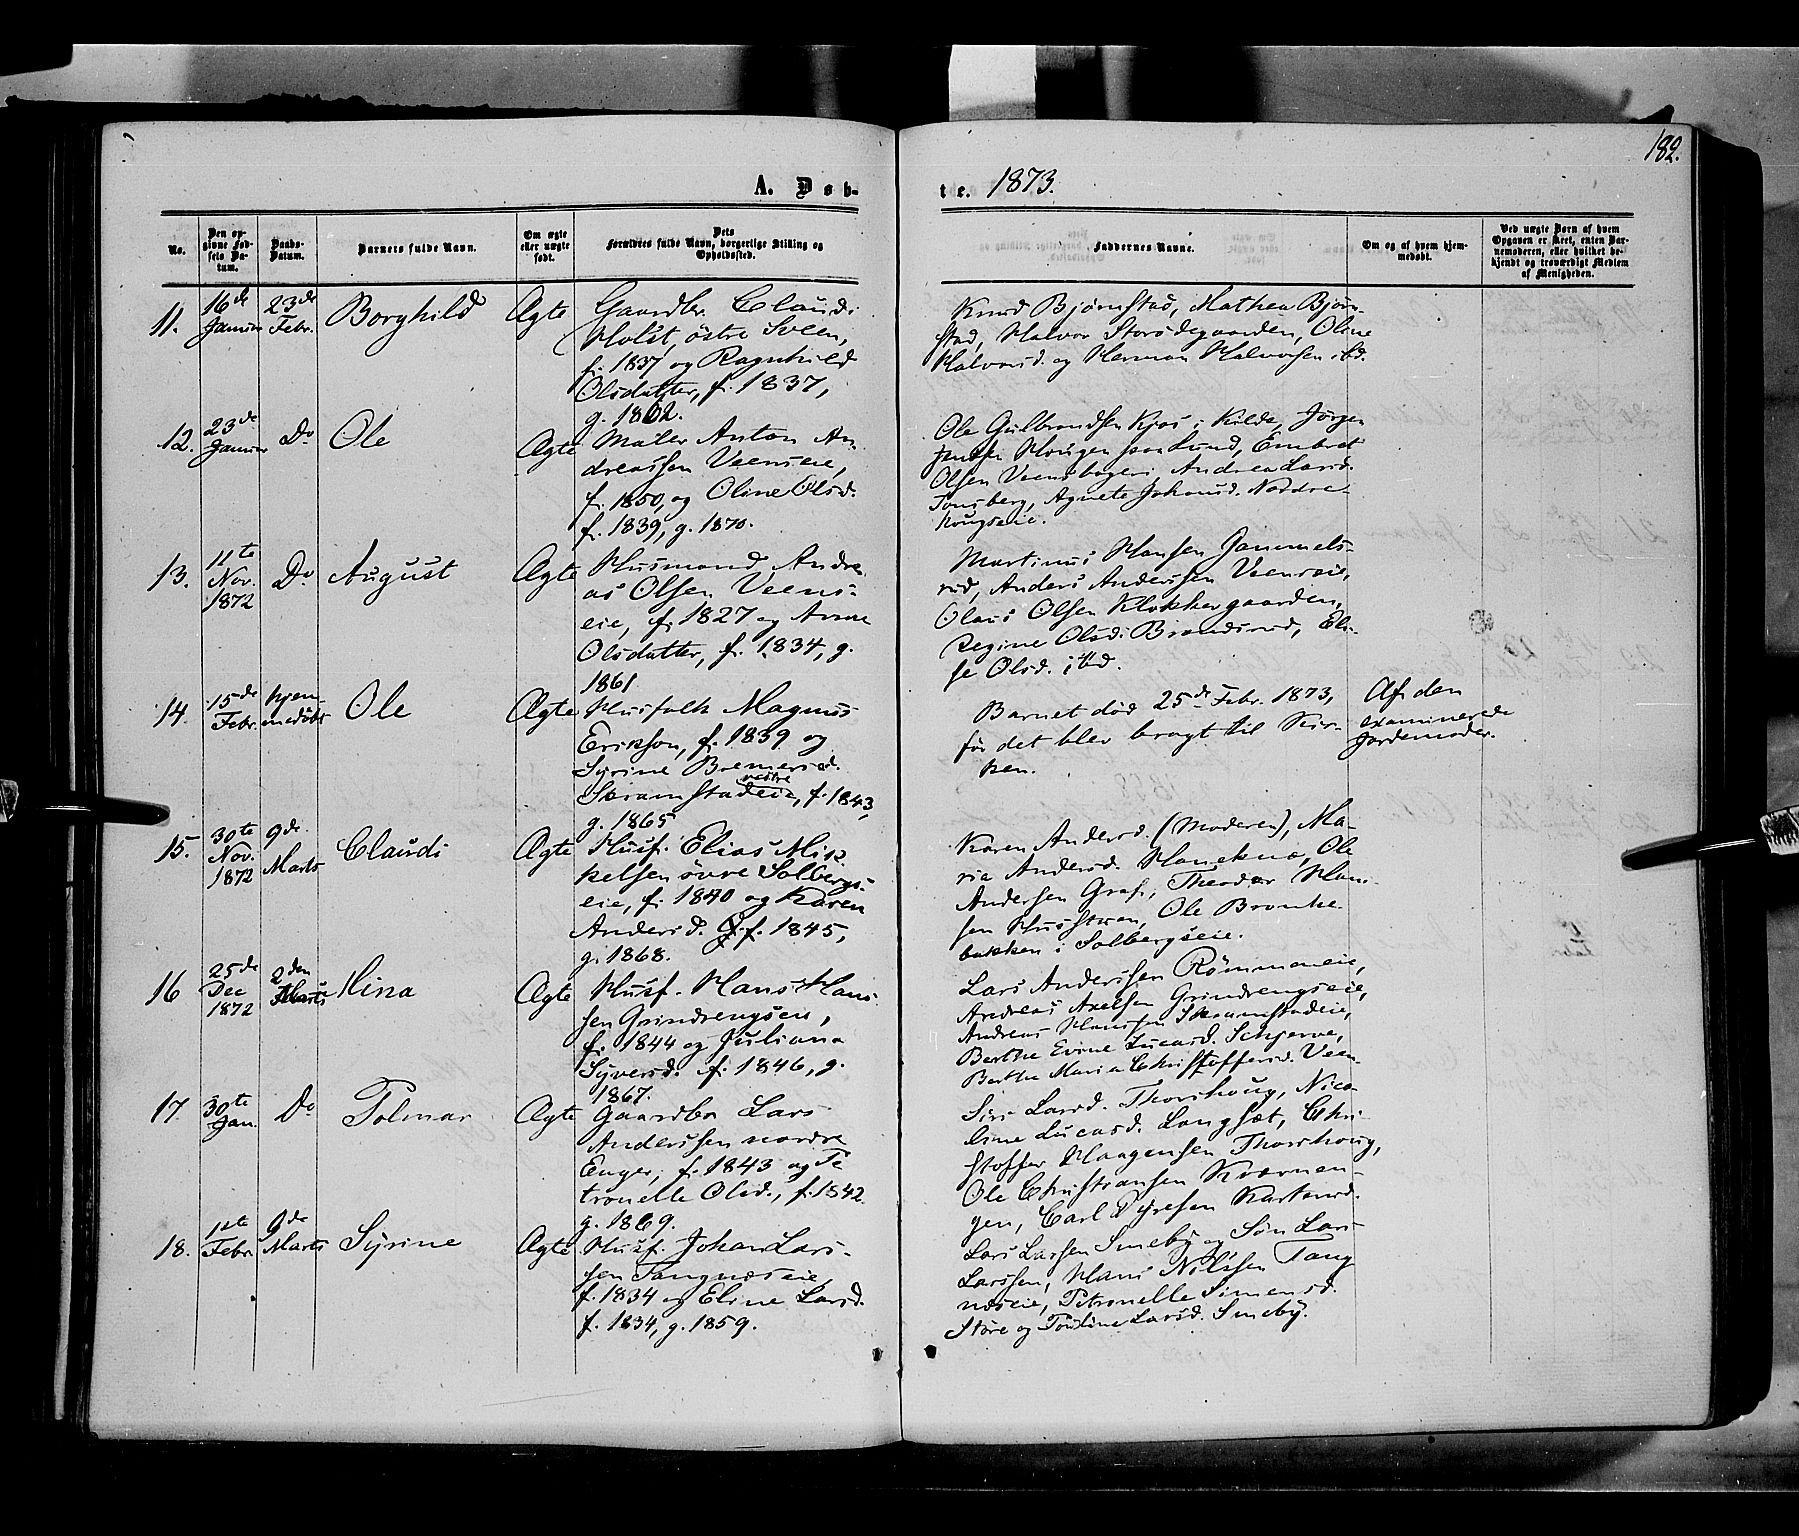 182.
A. Døb-
te. 1873.
No.
Den op-
givne Fød-
sels Da-
tum.
Daabs-
Datum.
Barnets fulde Navn.
Om ægte
eller uægte
født.
Dets
Forældres fulde Navn, borgerlige Stilling og
Opholdssted.
Faddernes Navne.
Om og af hvem hjem-
medøbt.
Ved uægte Børn af hvem
Opgaven er skeet, enten Bar-
nemoderen, eller hvilket be-
kjendt og troværdigt Medlem
af Menigheden.
11.
16de
Januar
23de
Febr.
Borghild
Ægte
Gaardbr. Claudi
Holst, östre Sveen,
f. 1837 og Ragnhild
Olsdatter, f. 1837,
g. 1862.
Knud Bjørnstad, Mathea Bjørn-
stad, Halvor Storödegaarden, Oline
Halvorsd. og Herman Halvorsen ibd.
12.
23de
Januar
Do
Ole
Ægte
Maler Anton An-
dreassen Veenseie,
f. 1850, og Oline Olsd.
f. 1839, g. 1870.
Ole Gulbrandsen Kjos i Kilde, Jørgen
Jensen Hougen paa Lund, Embret
Olsen Veens Andrea Larsd.
Tonsberg, Agnete Johansd. Nordre-
hougseie.
13.
11te
Nov.
1872
Do
August
Ægte
Husmand Andre-
as Olsen Veens-
eie, f. 1827 og Anne
Olsdatter, f. 1834, g.
1861
Martinus Hansen Gammels-
rud, Anders Anderssen Veenseie,
Olaus Olsen Klokkergaarden,
Regine Olsd. Brandsrud, Eli-
se Olsd. ibd.
14.
15de
Febr.
hjem-
medøbt
Ole
Ægte
Husfolk Magnus
Eriksen, f. 1839 og
Syrine Bremersd.
vestre
Skramstadeie, f. 1843,
g. 1865
Barnet död 25de Febr. 1873,
för det blev bragt til Kir-
ken.
Af den
examinerede
Jordemoder.
15.
30te
Nov.
1872
9de
Marts
Claudi
Ægte
Husf. Elias Mik-
kelsen övre Solbergs-
eie, f. 1840 og Karen
Andersd. f. 1845,
g. 1868.
Karen Andersd. (Moderen), Ma-
ria Andersd. Haneknæ, Ole
Andersen Graf, Theodor Han-
sen Ole Bronke-
bakken i Solbergseie.
16
25de
Dec
1872
2den
Marts
Mina
Ægte
Husf. Hans Han-
sen Grindrengseie,
f. 1844 og Juliana
Syversd. f. 1846, g.
1867.
Lars Anderssen Römmaneie,
Andreas Axelsen Grindrengseie,
Andreas Hanssen Skramstadeie,
Berthe Evine Lucasd. Schjerve,
Berthe Maria Christoffersd. Veen
17.
30te
Jan.
Do
Tolmar
Ægte
Gaardbr Lars
Anderssen nordre
Enger, f. 1843 og Pe-
tronelle Olsd., f. 1842
g. 1869.
Siri Larsd. Thorshoug, Nico-
line Lucasd. Langsæt, Chri-
stoffer Haagensen Thorshoug,
Ole Christiansen Kværnen-
gen, Carl
18.
1ste
Febr.
9de
Marts
Syrine
Ægte
Husf. Johan Lars-
sen Tangnæseie,
f. 1834 og Eline Larsd.
f. 1834, g. 1859.
Lars Larsen Smeby og Søn Lars
Larssen, Hans Nilssen Tang-
næseie, Petronelle Simensd.
Støre og Pauline Larsd. Smeby.